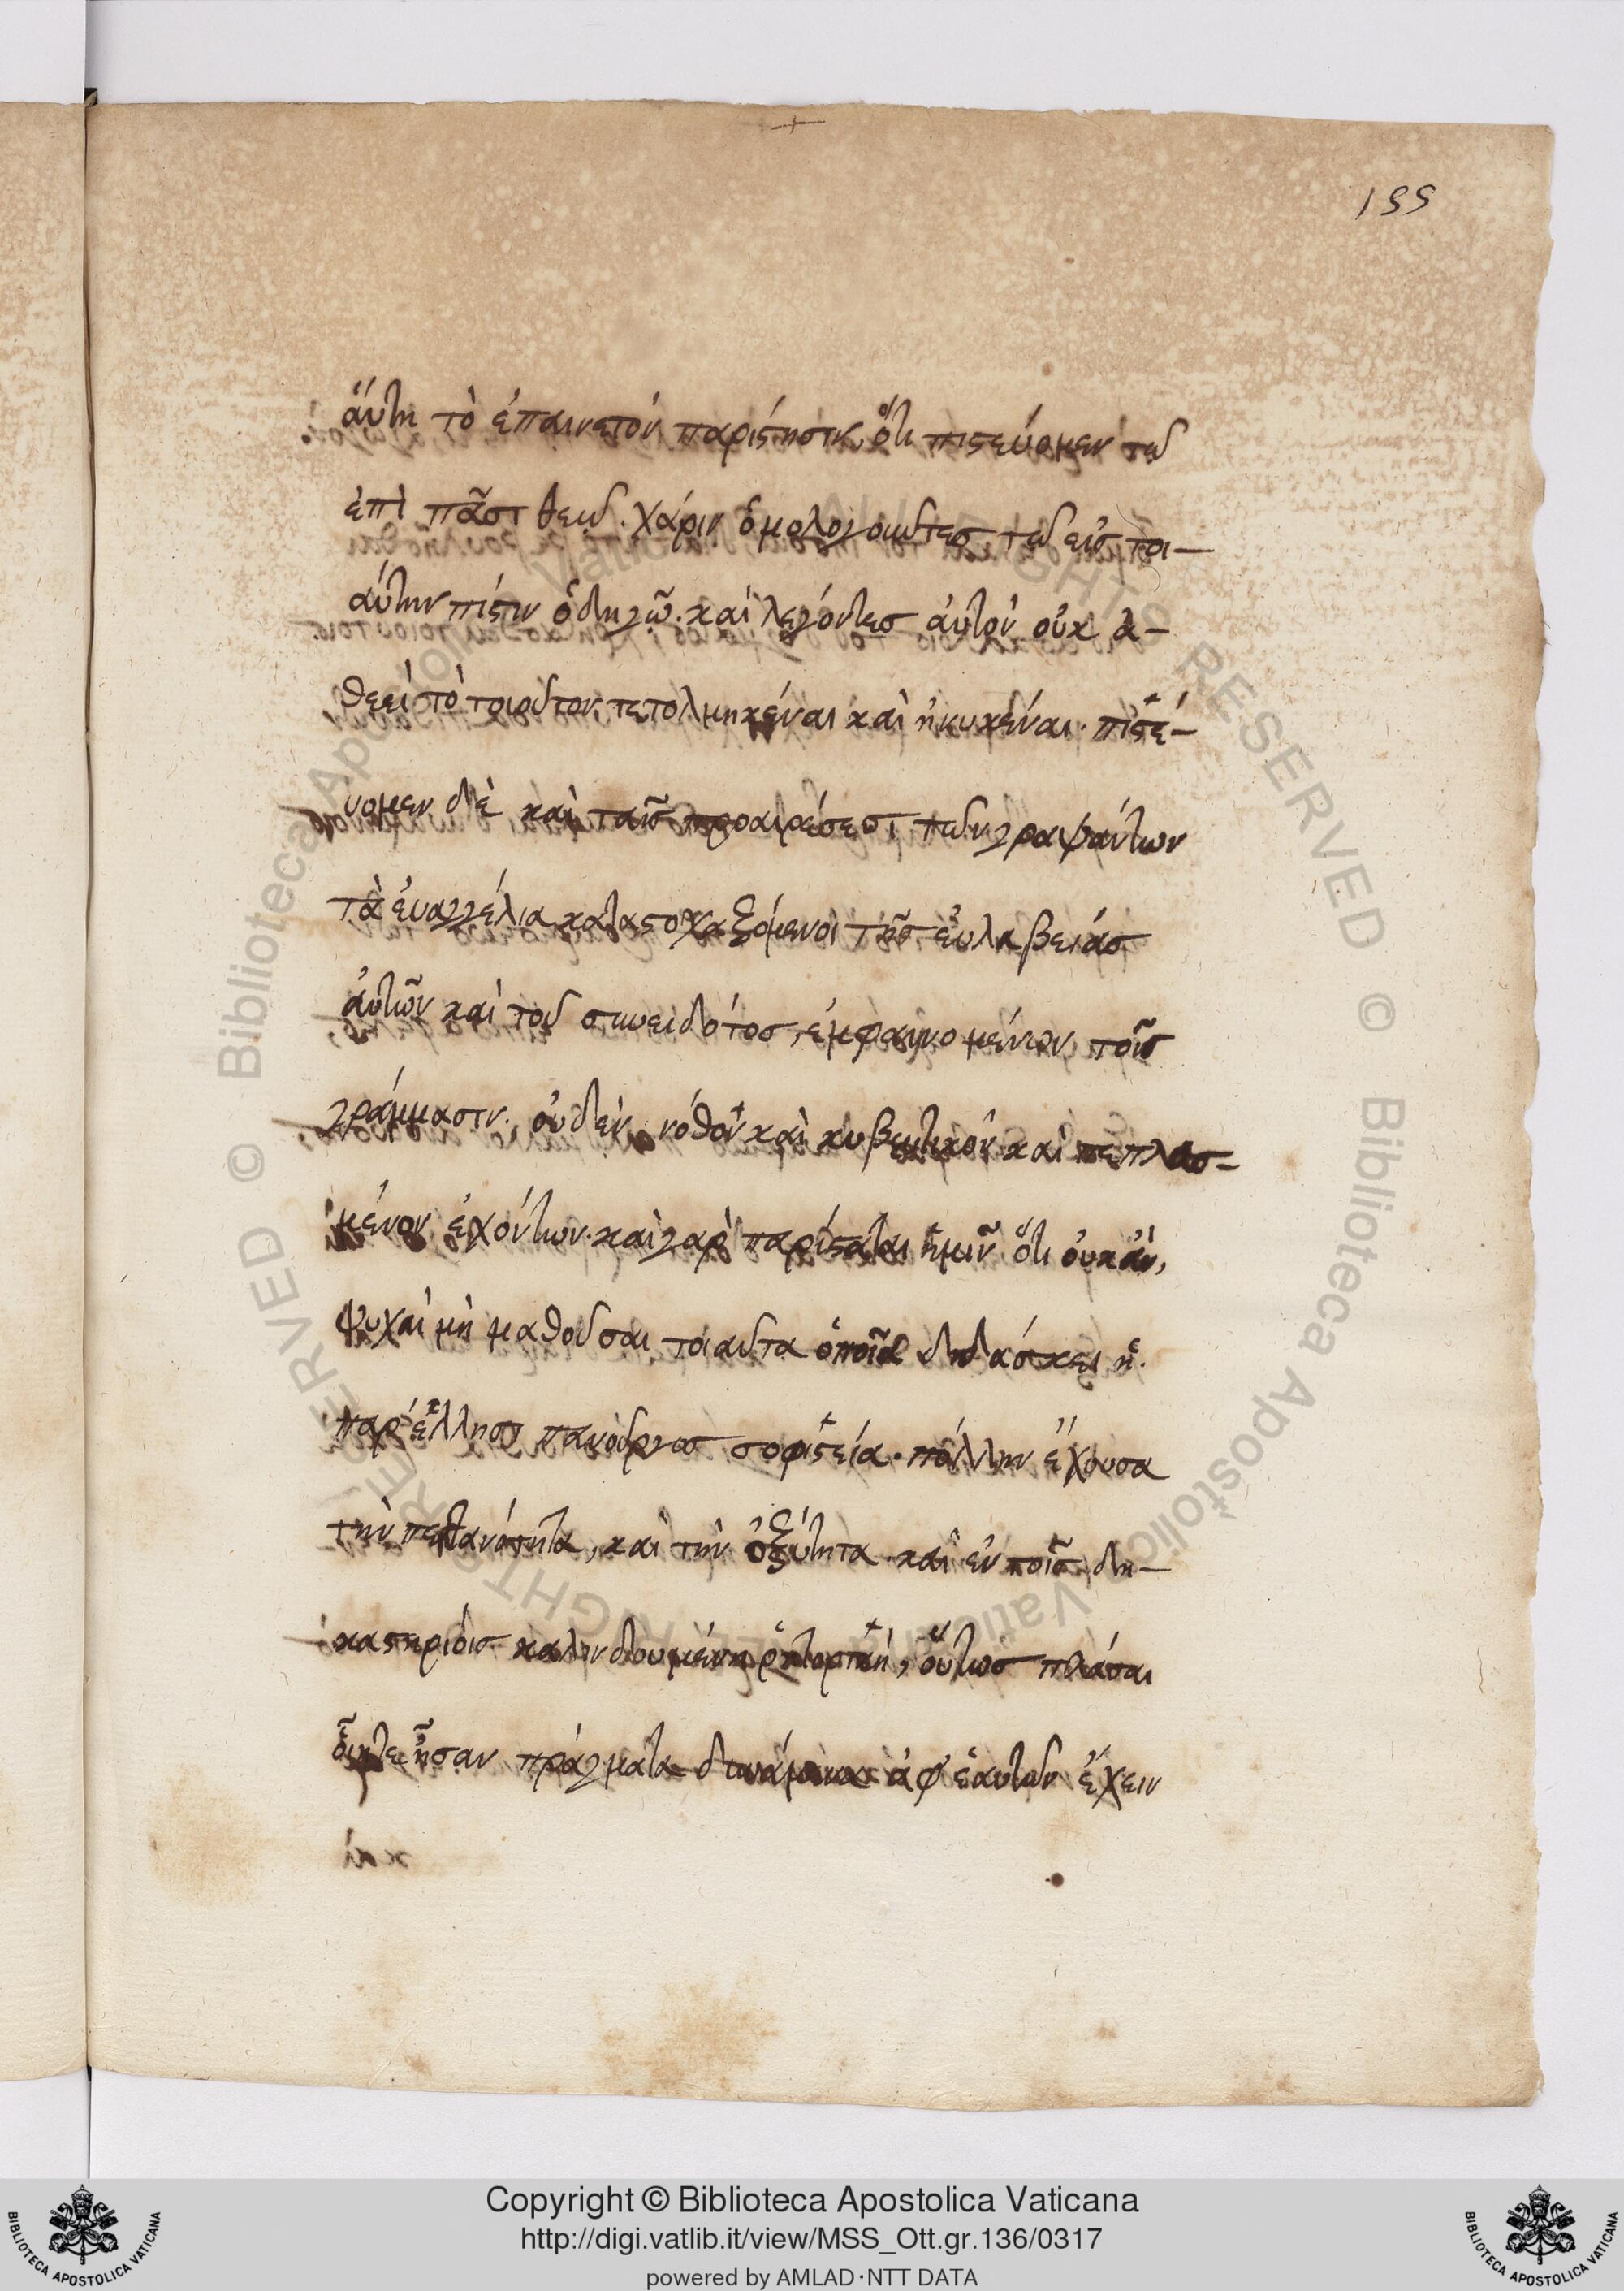 155
ἅυτη τὸ ἐπαινετὸν παρίστησιν, ὅτι πιστεύομεν τῶ
ἐπὶ πᾶσι θεῶ. χάριν ὁμολογουντες τῶ εἰς τοι-
αύτην πίστιν ὁδηγῶ. καὶ λεγόντες ἀυτὸν οὐκ ἀ-
θεεὶ τὸ τοιοῦτον τετολμηκέναι καὶ ἠνυκέναι. πιστέ-
υομεν δὲ καὶ ταῖς προαιρέσεσι τῶν γραψάντων
τὰ ἐυαγγέλια καταστοχαζόμενοι τῆς ἐυλαβειάς
ἀυτῶν καὶ τοῦ συνειδότος, ἐμφαινομένων τοῖς
γράμμασιν. οὐδὲν νόθον καὶ κυβευτικὸν καὶ πεπλασ-
μένον ἐχόντων. καὶ γαρ παρίσταται ἡμιῖν ὅτι ὀυκ ἀν,
ψυχαὶ μὴ μαθοῦσαι τοιαῦτα ὁποῖα διδάσκει ἡ
παρ' ἕλλησι πανοῦργος σοφιστεία. πόλλην ἔχουσα
τὴν πειθανότητα, καὶ τὴν ὀξύτητα. καὶ ἐν τοῖς δη-
καστηριόις καλινδουμένη ῥητορικὴ, ὅυτως πλάσαι
ὅιητε ἦσαν πράγματα δυνάμενα ἀφ' ἑαυτῶν ἔχειν
Copyright © Biblioteca Apostolica Vaticana
http://digi.vatlib.it/view/MSS_Ott.gr.136/0317
powered by AMLAD·NTT DATA
BIBLIOTECA APOSTOLICA VATICANA
BIBLIOTECA APOSTOLICA VATICANA